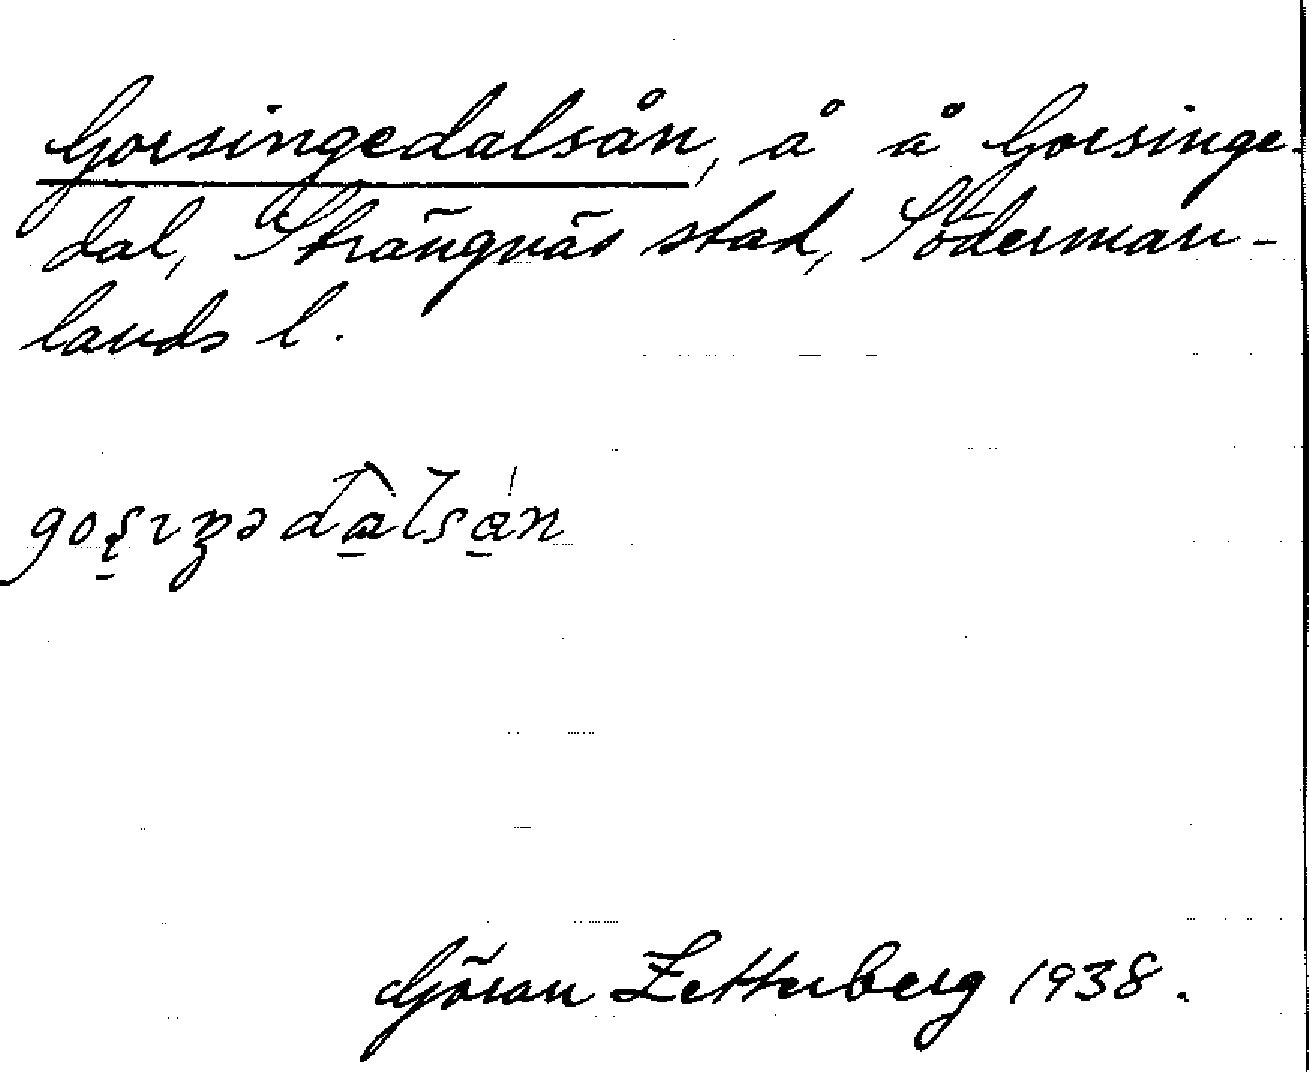 Gorsingedalsån, å å Gorsinge-
dal, Strängnäs stad, Söderman-
lands l.
Göran Zetterberg 1938.